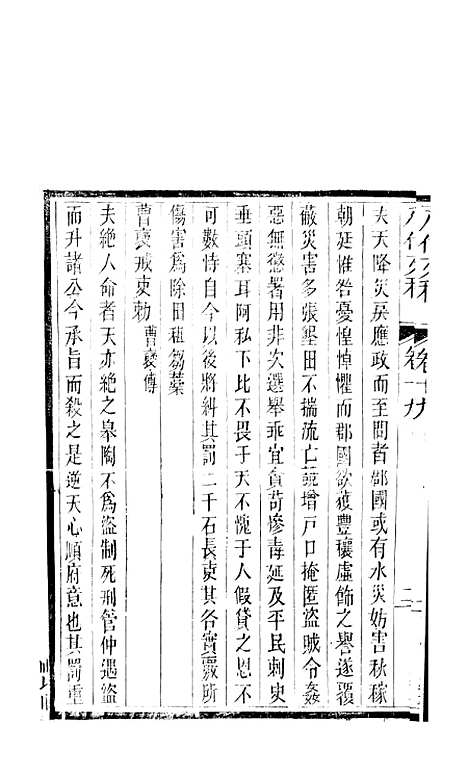 夫天降災戾應政而至間者郡國或有水災妨害秋稼
朝廷惟咎憂惶悼懼而郡國欲獲豐穰虛飾之譽遂覆
蔽災害多張墾田不揣流亡競增戶口掩匿盜賊令姦
惡無懲署用非次選舉乖宜貪苛慘毒延及平民刺史
垂頭塞耳阿私下比不畏于天不愧于人假貸之恩不
可數恃自今以後將糾其罰二千石長吏其各實覈所
傷害爲除田租芻藁
曹襃戒吏勅 曹襃傳
夫絶人命者天亦絶之臯陶不爲盜制死刑管仲遇盜
而升諸公今承旨而殺之是逆天心順府意也其罰重
卷十九